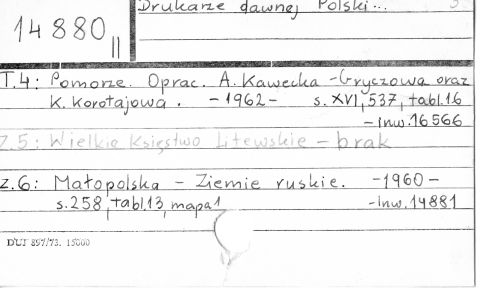 Drukarze dawnej Polski...
14880 II
T.4: Pomorze. Oprac. A. Kawecka-Gryczowa oraz
K. Korotajowa. -1962- s. XVI, 537, tabl.16
-Inw.16566
z.5: Wielkie Księstwo Litewskie - brak
z.6: Małopolska - Ziemie ruskie. -1960-
s.258, tabl.13, mapa1 -Inw.14881
DUI 897/73. 15000